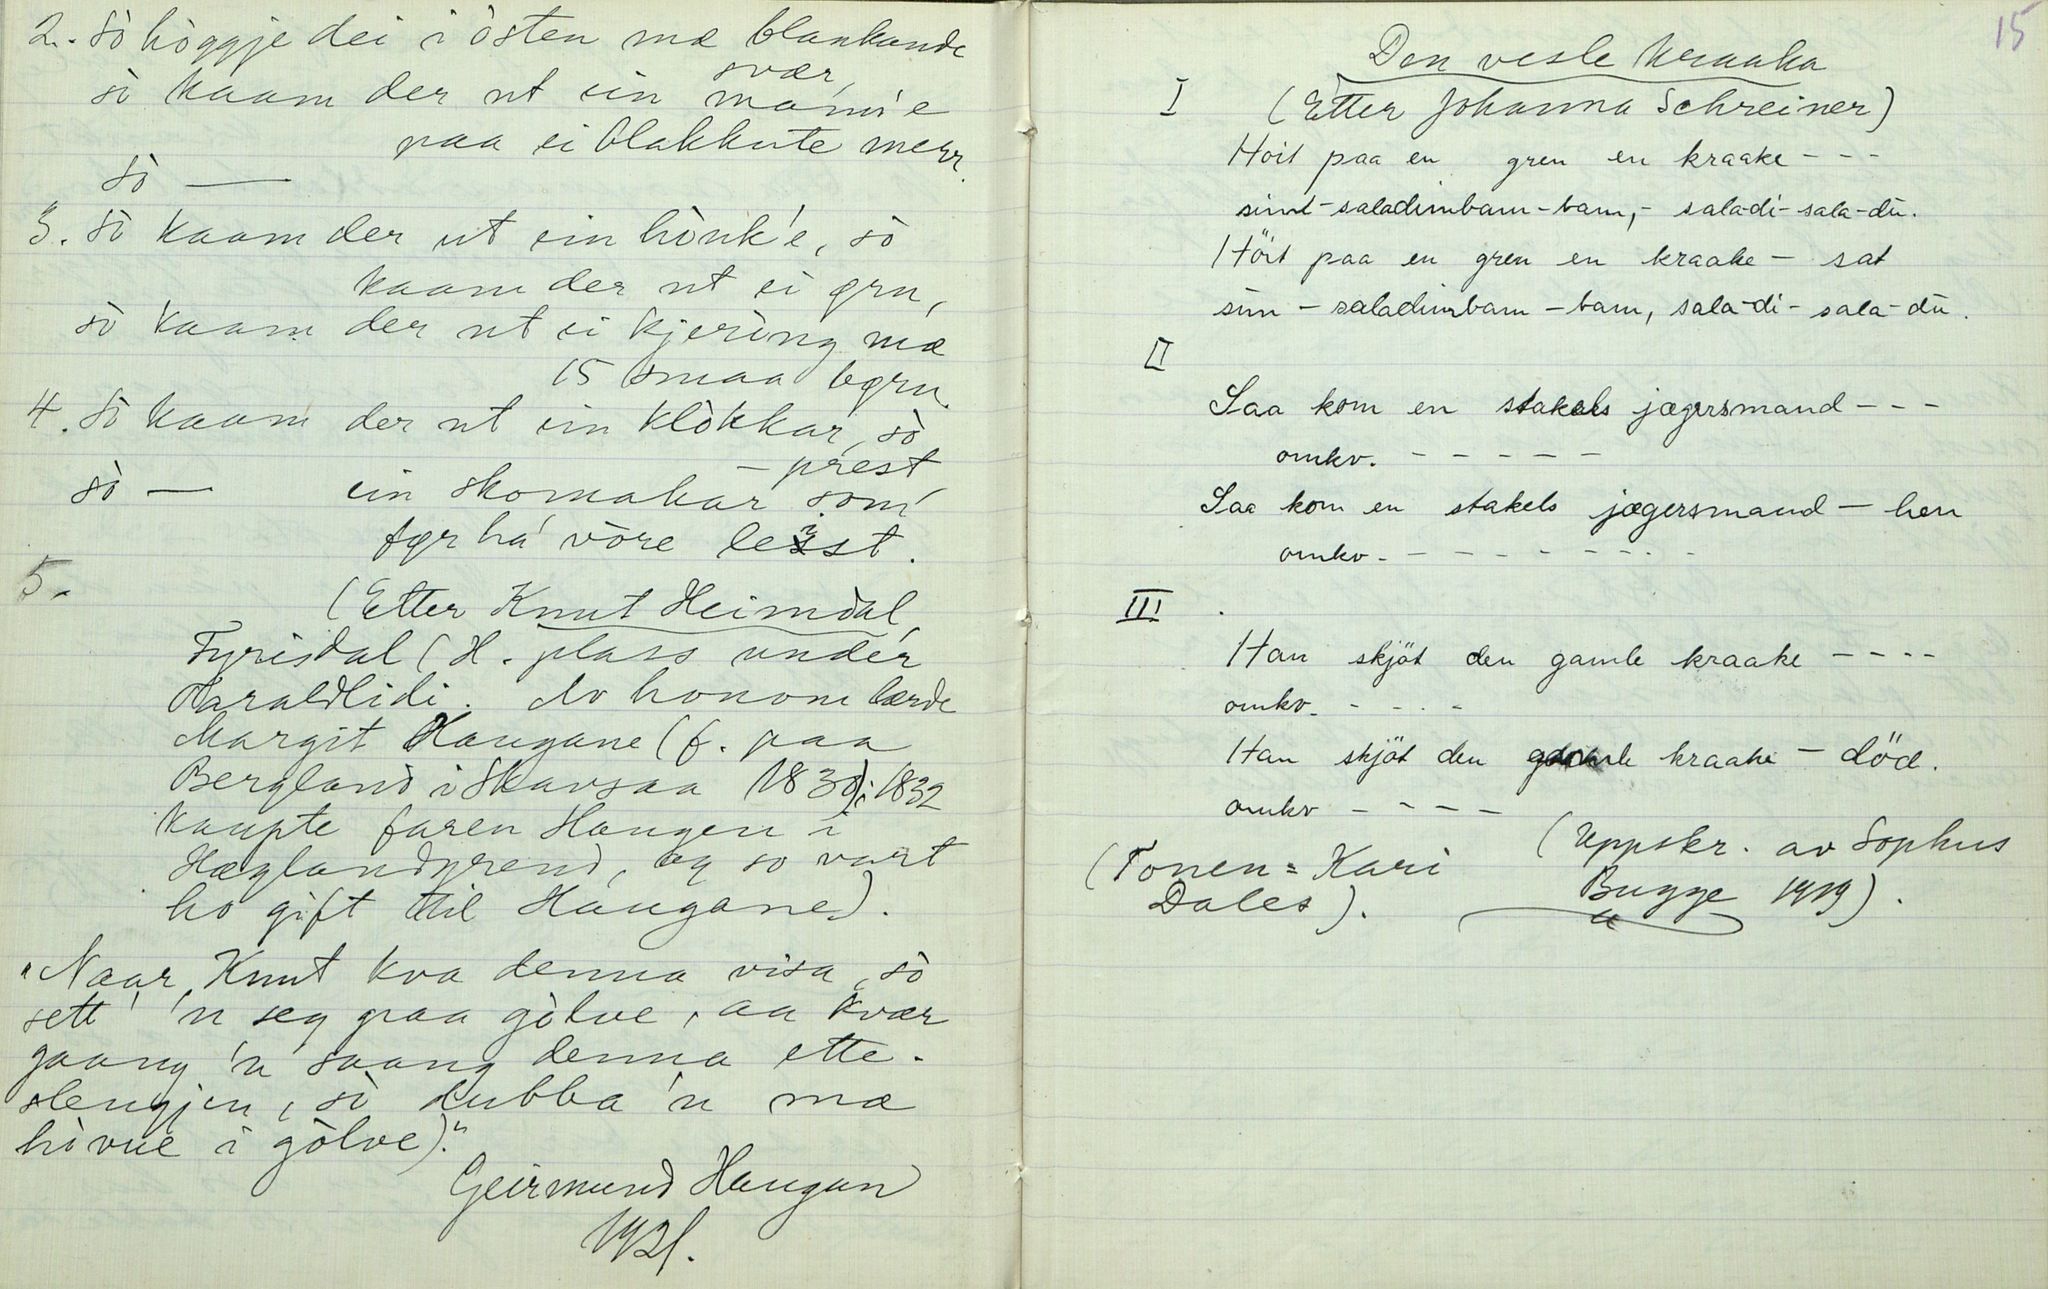 2. Sò hòggje dei i òsten mæ blankande
svær,
sò kaam der ut ein mann'e
paa ei blakkute merr.
Sò —
3. Sò kaam der ut ein hònk'e, sò
kaam der ut ei gru,
sò kaam der ut ei kjering mæ
15 smaa bgru.
4. Sò kaam der ut ein klòkkar, sò
— prest,
sò — ein skomakar som
fyr há vòre lesst.
5.
(Etter Knut Heimdal,
Fyrisdal (H. plass under
Haraldlidi. Av honom lærde
Margit Haugane (f. paa
Bergland i Skavsaa 1830); 1832
kaupte faren Haugen i
Hæglandgrend, og so vart
ho gift til Haugane).
"Naar Knut kva denna visa, sò
sett' 'n seg paa gòlve, aa kvær
gaang 'n saang denna ette-
slengjen, sò dubba 'n mæ
hòvue i gòlve)."
Geirmund Haugan
1921.
15
Den vesle kraaka
I (Etter Johanna Schreiner)
Höit paa en gren en kraake - - -
simt-saladimbam-bam,- sala-di-sala-dü.
Höit paa en gren en kraake - sat
sim - saladimbam - bam, sala-di- sala-dü.
II
Saa kom en stakels jægersmand - - -
omkv. - - - - -
Saa kom en stakels jægersmand - hen
omkv - - - - - - - -
III
Han skjöt den gamle kraake - - - -
omkv. - - - -
Han skjöt den gamle kraake - död.
omkv - - - -
(Uppskr. av Sophus
Bugge 1919).
(Tonen = Kari
Dales).